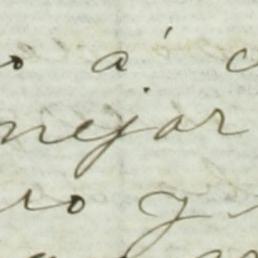 o á c
nejar
ro y